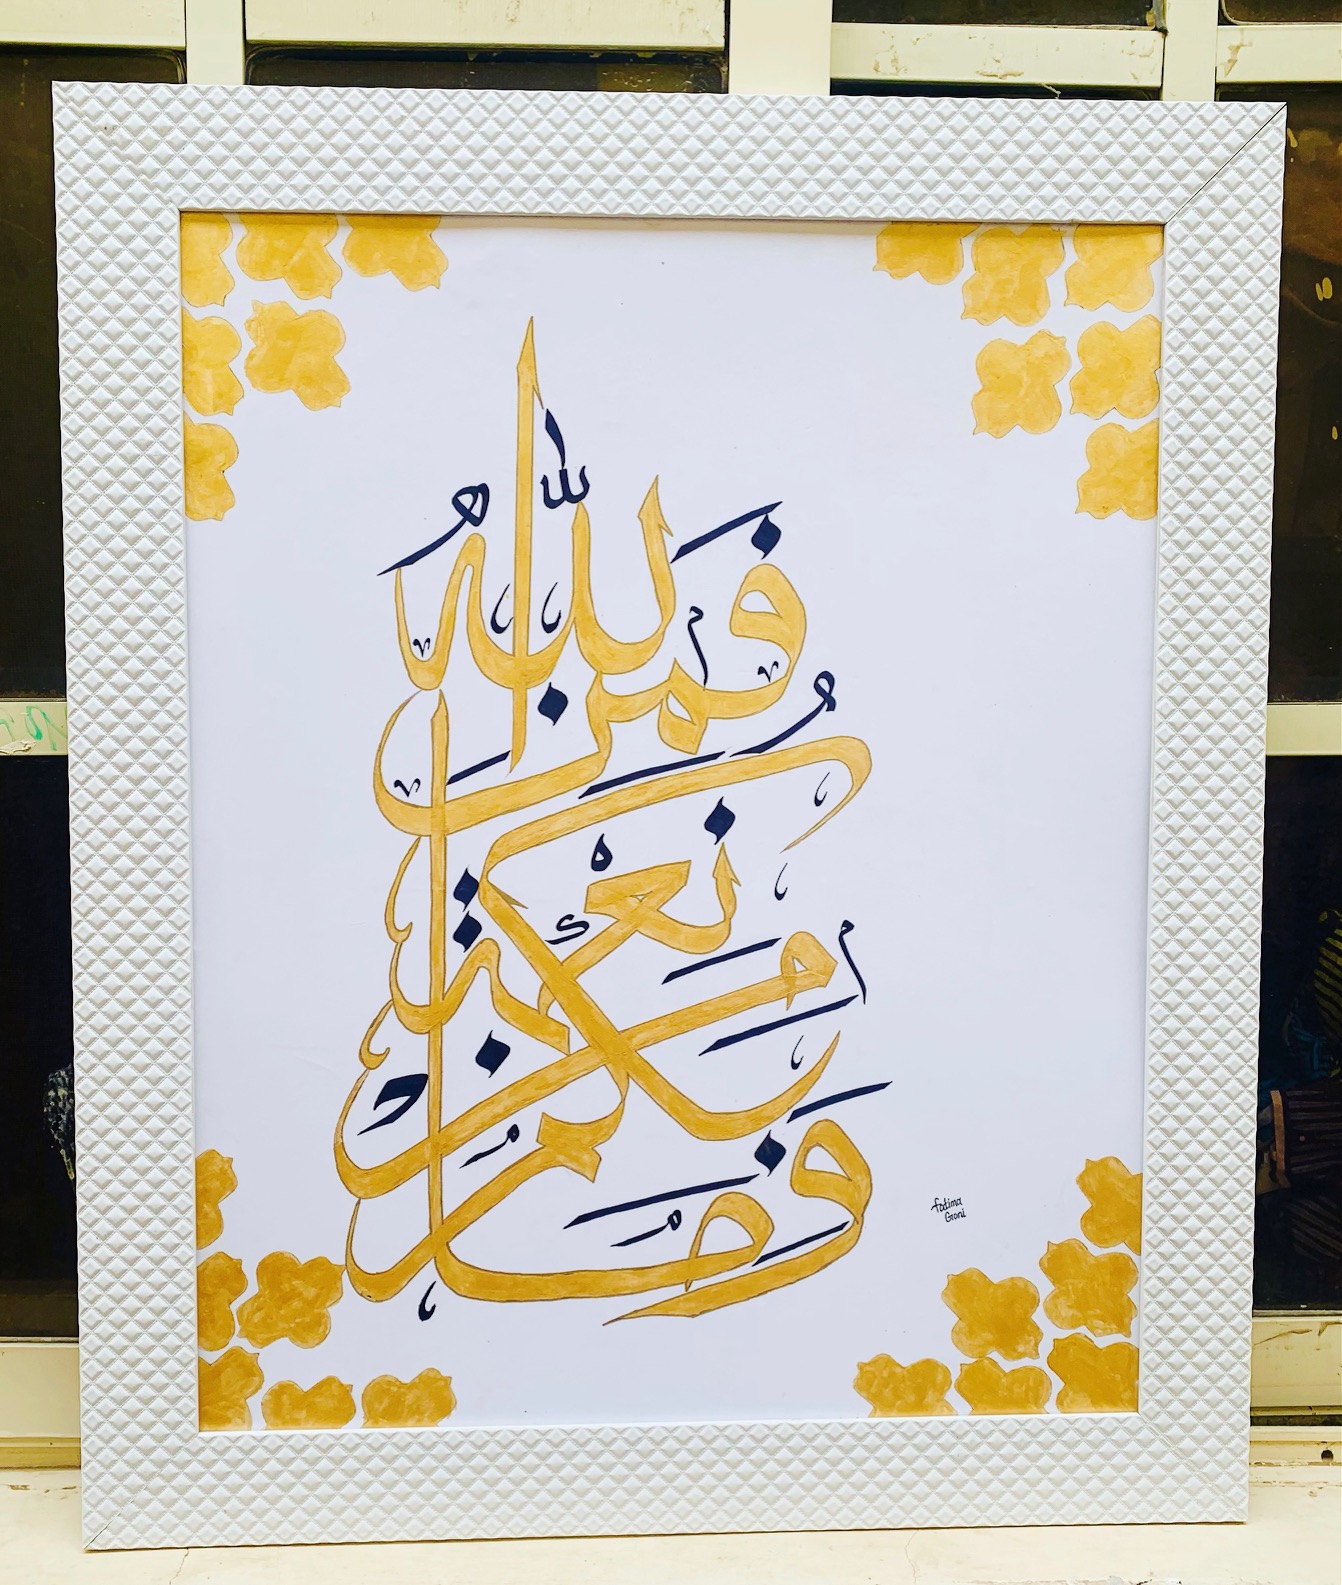 وَمَا بِكُم مِّن نِّعْمَةٍ فَمِنَ اللَّهِ
fatima
Goni